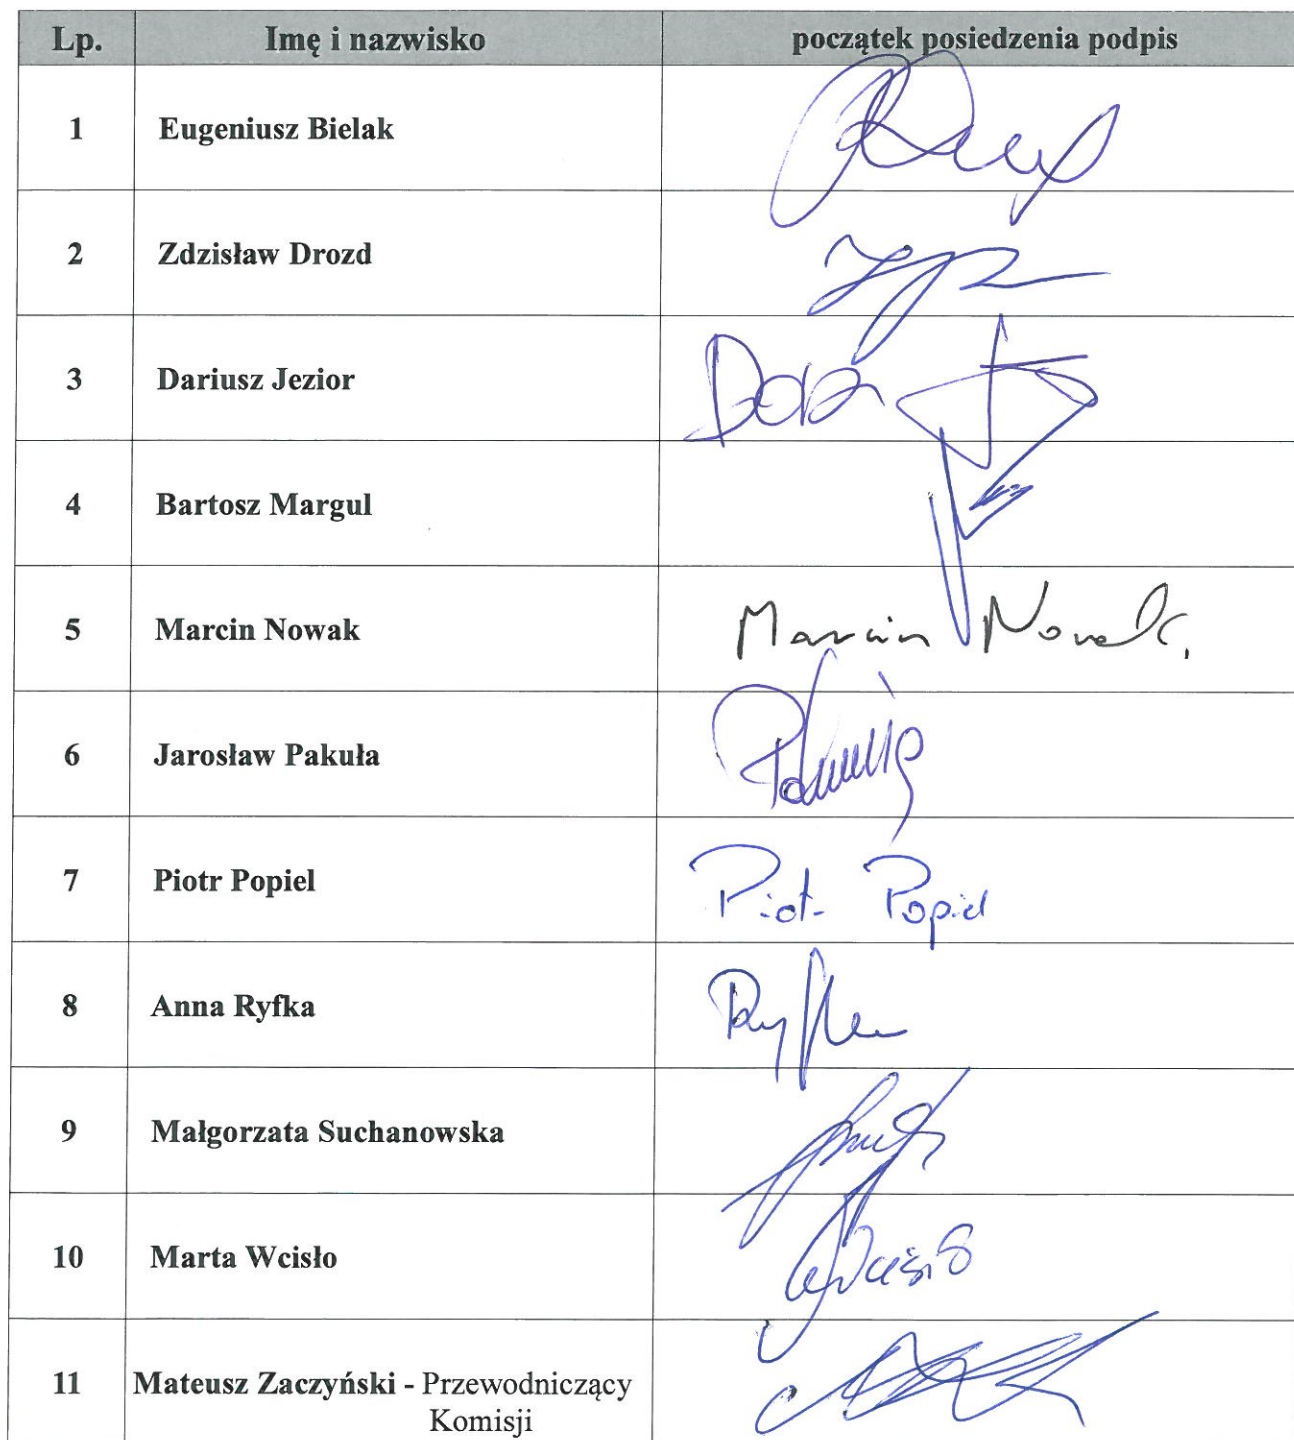 Lp. Imę i nazwisko początek posiedzenia podpis
1 Eugeniusz Bielak
2 Zdzisław Drozd
3 Dariusz Jezior
4 Bartosz Margul
5 Marcin Nowak Marcin Nowak
6 Jarosław Pakuła
7 Piotr Popiel Piotr Popiel
8 Anna Ryfka
9 Małgorzata Suchanowska
10 Marta Wcisło
11 Mateusz Zaczyński - Przewodniczący
Komisji